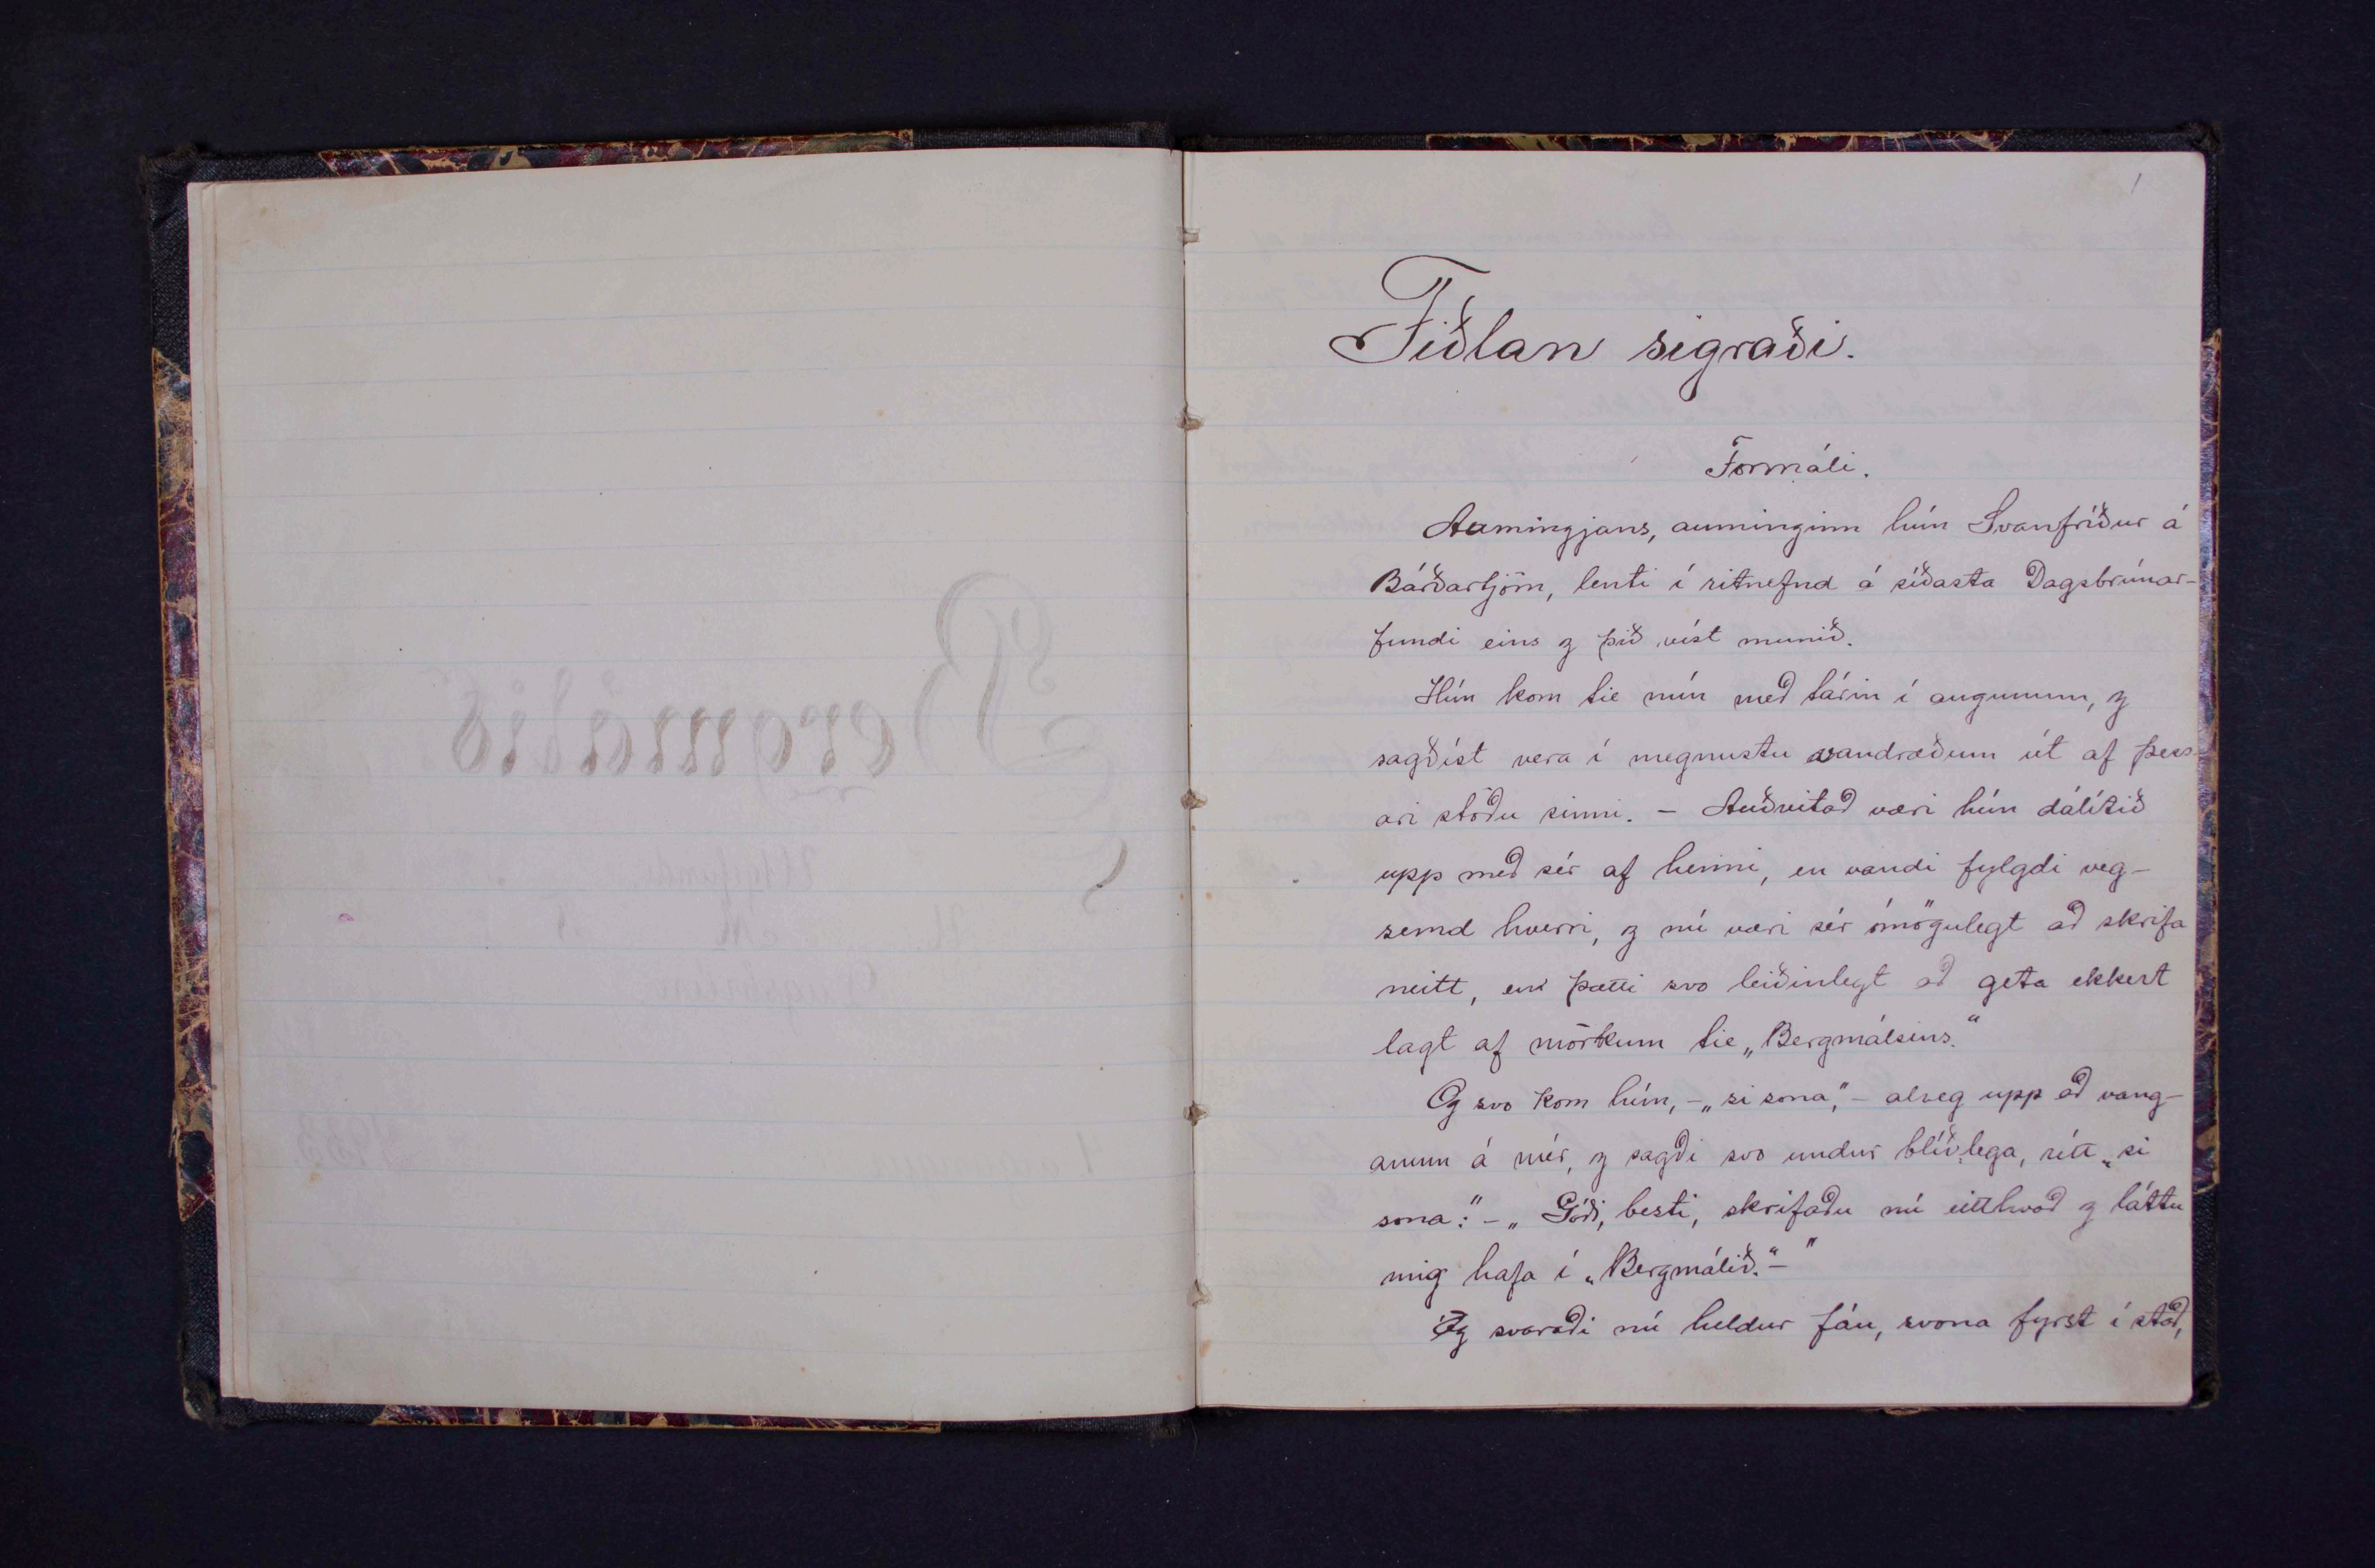 1
Fiðlan sigraði.
Formáli.
Aumingjans, auminginn hún Svanfríður á
Bárðartjörn, lenti í ritnefnd á síðasta Dagsbrúnar-
fundi eins og þið víst munið.
Hún kom til mín með tárin í augunum, og
sagðist vera í megnustu vandræðum út af þess-
ari stöðu sinni. – Auðvitað væri hún dálítið
upp með sér af henni, en vandi fylgdi veg-
semd hverri, og nú væri sér ómögulegt að skrifa
neitt, en þætti svo leiðinlegt að geta ekkert
lagt af mörkum til „Bergmálsins.“
Og svo kom hún, – „si sona“, – alveg upp að vang-
anum á mér, og sagði svo undur blíðlega, rétt „si
sona“: – „Góði, besti, skrifaðu nú eitthvað og láttu
mig hafa í „Bergmálið.“ – “
Ég svaraði nú heldur fáu, svona fyrst í stað,